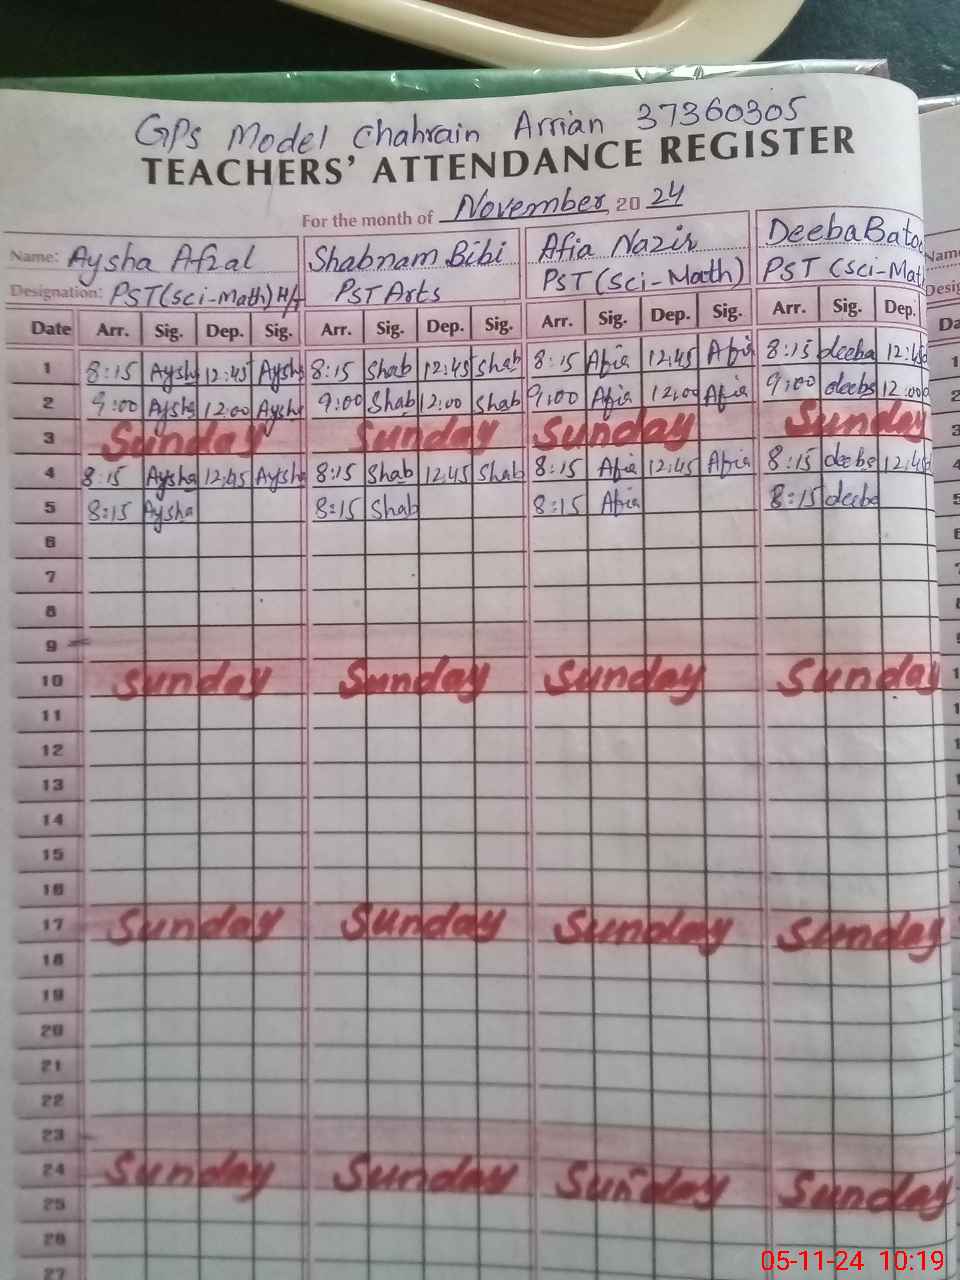 GPs Model Chahrain Arrian 37360305
TEACHERS' ATTENDANCE REGISTER
For the month of November 2024
Name: Aysha Afzal Shabnam Bibi Afia Nazir Deeba Bato
Designation: PST(Sci-Math) H/t PST Arts PST (Sci-Math) PST (Sci-Mat
Date Arr. Sig. Dep. Sig. Arr. Sig. Dep. Sig. Arr. Sig. Dep. Sig. Arr. Sig. Dep.
1 8:15 Aysha 12:45 Aysha 8:15 Shab 12:45 Shab 8:15 Afia 12:45 Afia 8:15 deeba 12:45
2 9:00 Aysha 12:00 Aysha 9:00 Shab 12:00 Shab 9:00 Afia 12:00 Afia 9:00 deeba 12:00
3 Sunday Sunday Sunday Sunday
4 8:15 Aysha 12:45 Aysha 8:15 Shab 12:45 Shab 8:15 Afia 12:45 Afia 8:15 deeba 12:45
5 8:15 Aysha 8:15 Shab 8:15 Afia 8:15 deeba
6
7
8
9
10 Sunday Sunday Sunday Sunday
11
12
13
14
15
16
17 Sunday Sunday Sunday Sunday
18
19
20
21
22
23
24 Sunday Sunday Sunday Sunday
25
26
27
05-11-24 10:19